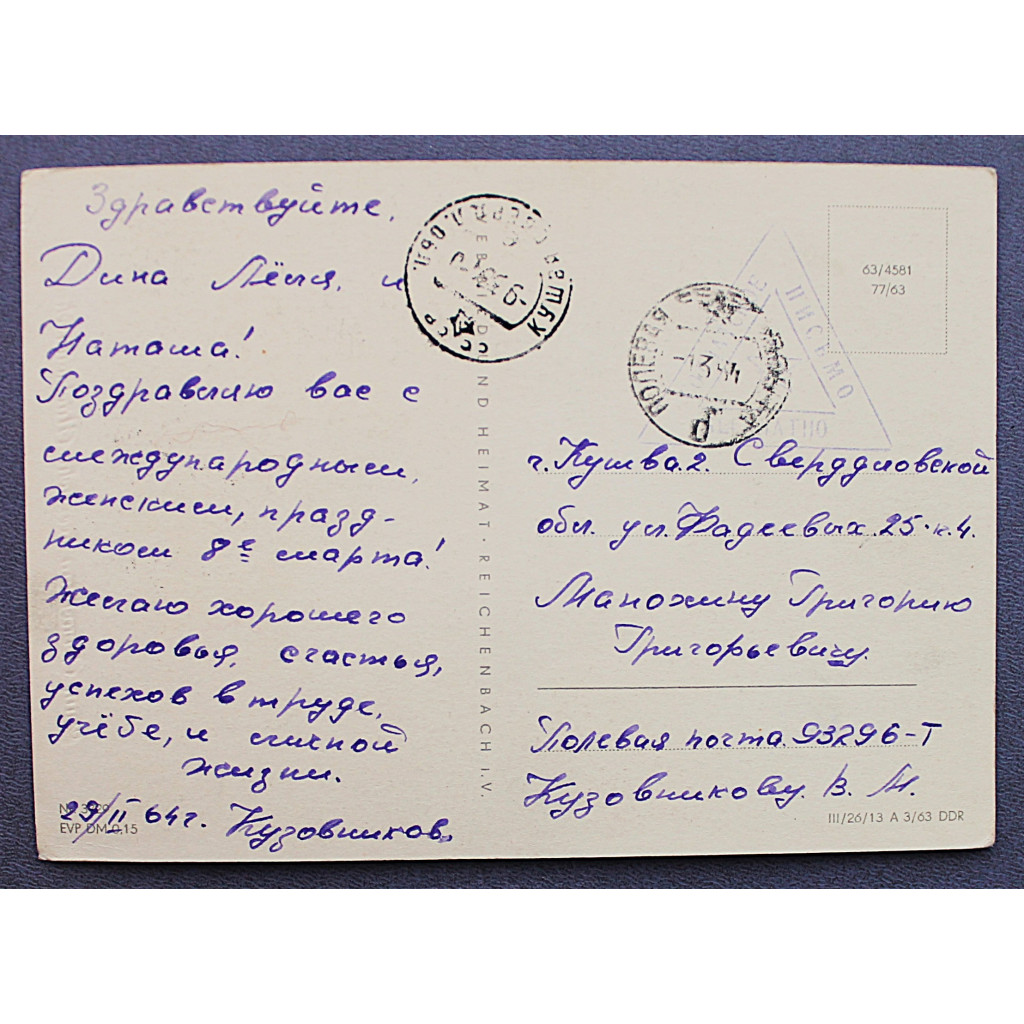 Здравствуйте,
Дина Лёля, и
Наташа!
Поздравляю вас с
международным,
женским, празд-
ником 8е марта!
Желаю хорошего
здоровья, счастья,
успехов в труде,
учёбе, и личной
жизни.
29/II 64 г. Кузовников.
EVP DM 0,15
ND HEIMAT · REICHENBACH I.V.
КУШВА СВЕРДЛ. ОБЛ.
СССР
ПОЛЕВАЯ ПОЧТА
ПИСЬМО
63/4581
77/63
г. Кушва 2. Свердловской
обл. ул. Фадеевых 25. к. 4.
Манохину Григорию
Григорьевичу.
Полевая почта 93296-Т
Кузовникову. В. М.
III/26/13 A 3/63 DDR